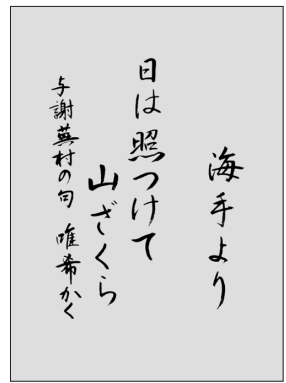 海手より
日は照つけて
山ざくら
与謝蕪村の句 唯希かく